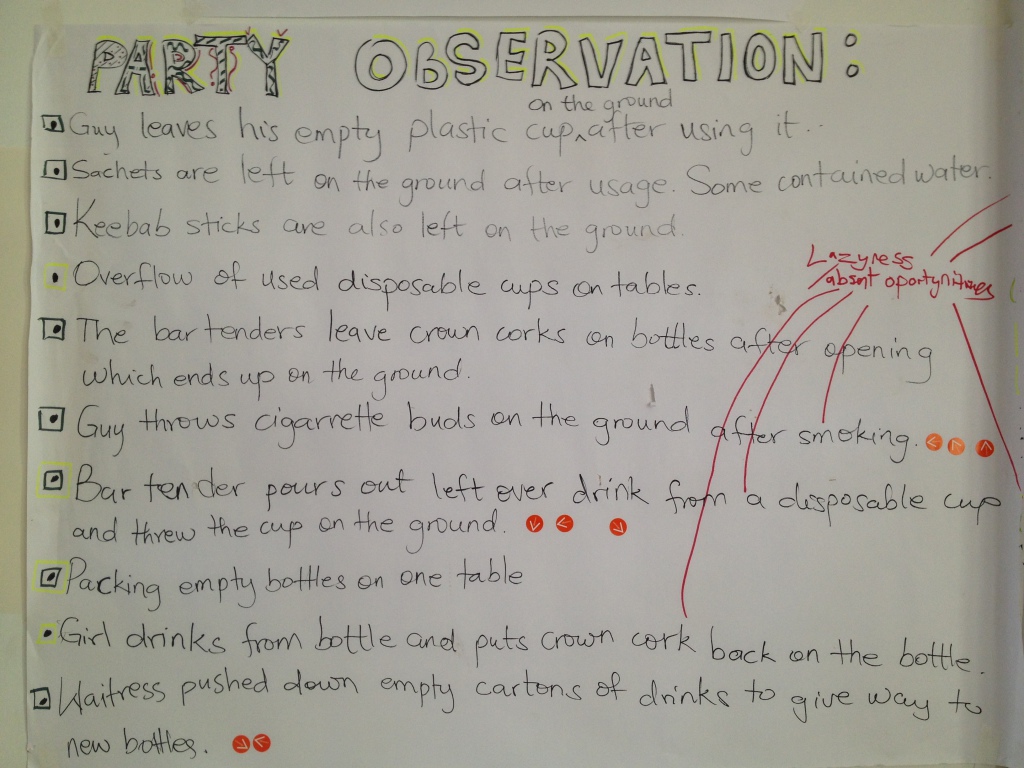 PARTY OBSERVATION:
on the ground
Guy leaves his empty plastic cup^after using it..
Sachets are left on the ground after usage. Some contained water.
Keebab sticks are also left on the ground.
Lazyness
absent oportynitives
Overflow of used disposable cups on tables.
The bar tenders leave crown corks on bottles after opening
which ends up on the ground.
Guy throws cigarrette buds on the ground after smoking.
Bar tender pours out left over drink from a disposable cup
and threw the cup on the ground.
Packing empty bottles on one table
Girl drinks from bottle and puts crown cork back on the bottle.
Waitress pushed down empty cartons of drinks to give way to
new bottles.